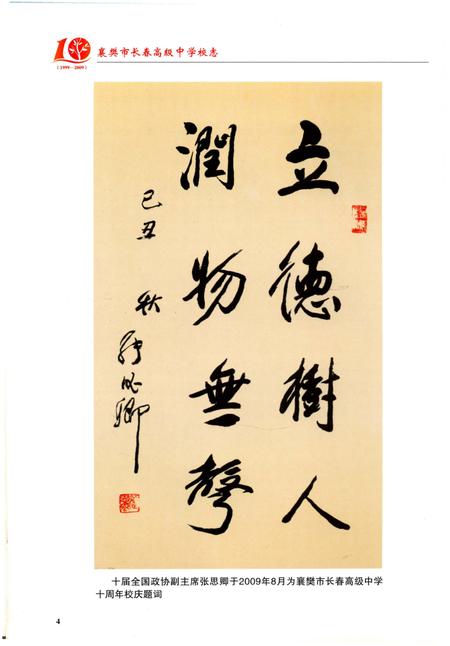 10
(1999—2009)
襄樊市长春高级中学校志
立德樹人
潤物無聲
己丑 秋 张思卿
十届全国政协副主席张思卿于2009年8月为襄樊市长春高级中学
十周年校庆题词
4